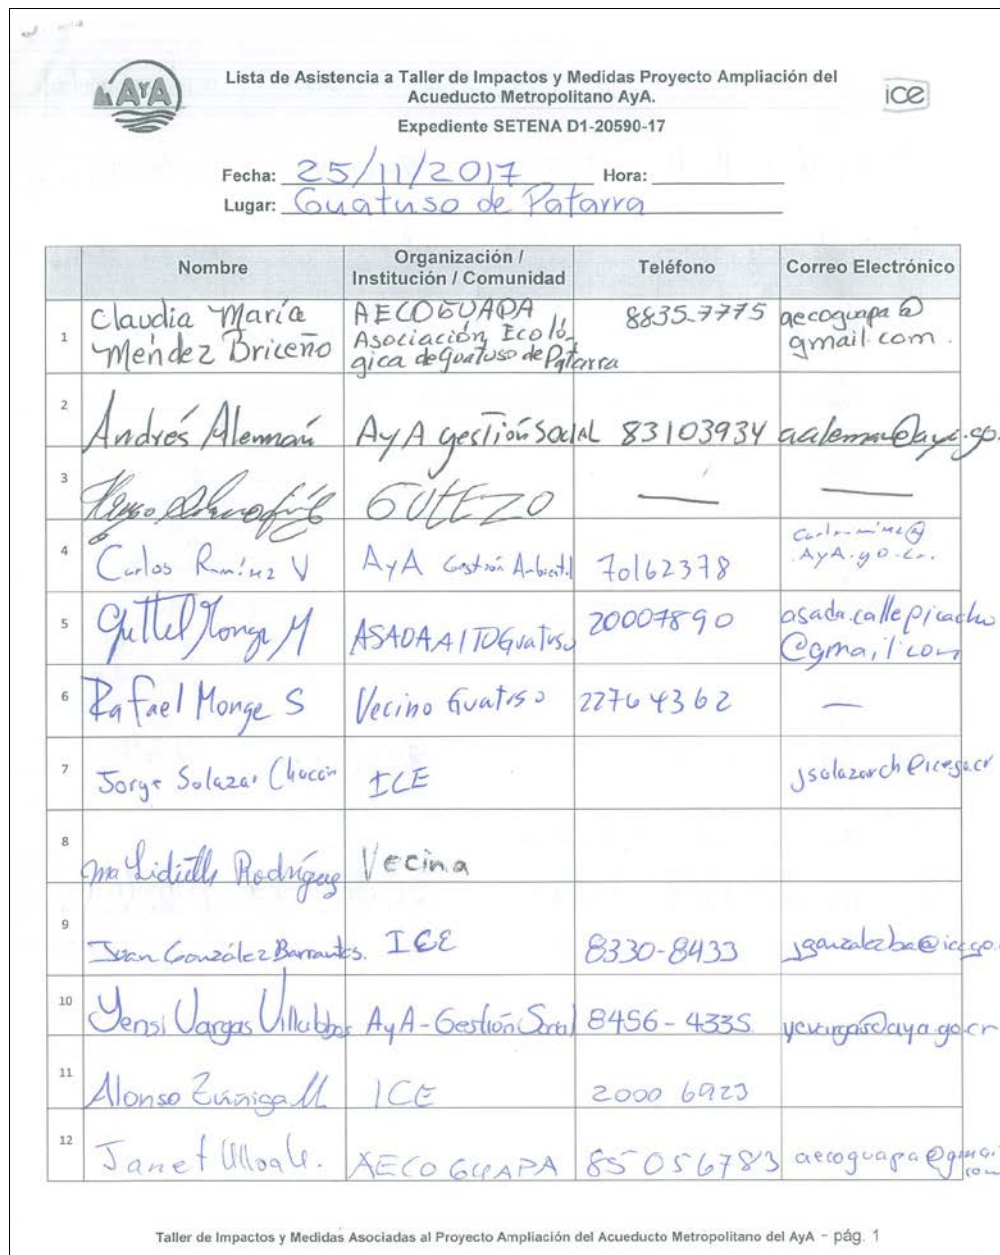 AyA
Lista de Asistencia a Taller de Impactos y Medidas Proyecto Ampliación del
Acueducto Metropolitano AyA.
ice
Expediente SETENA D1-20590-17
Fecha: 25/11/2017 Hora:
Lugar: Guatuso de Patarra
Nombre Organización / Institución / Comunidad Teléfono Correo Electrónico
1 Claudia María Méndez Briceño AECOGUAPA Asociación Ecológica de Guatuso de Patarra 8835-7775 aecoguapa@gmail.com.
2 Andrés Alemán AyA gestión Social 83103934 aaleman@aya.go.
3 GUTEZO — —
4 Carlos Ramírez V AyA Gestión Ambiental 70162378
5 Monge M ASADA AITO Guatuso 20007890 asada.callepicacho@gmail.com
6 Rafael Monge S Vecino Guatuso 22764362 —
7 Jorge Solazar Chacón ICE
8 Ma Lidieth Rodríguez Vecina
9 Juan González Barrantes. ICE 8330-8433 jgonzalezba@ice.go.
10 Yensi Vargas Villalobos AyA-Gestión Social 8456-4335 yevargas@aya.go.cr
11 Alonso Zúñiga M ICE 2000 6923
12 Janet Ulloa AECOGUAPA 85056783 aecoguapa@gmail.com
Taller de Impactos y Medidas Asociadas al Proyecto Ampliación del Acueducto Metropolitano del AyA - pág. 1